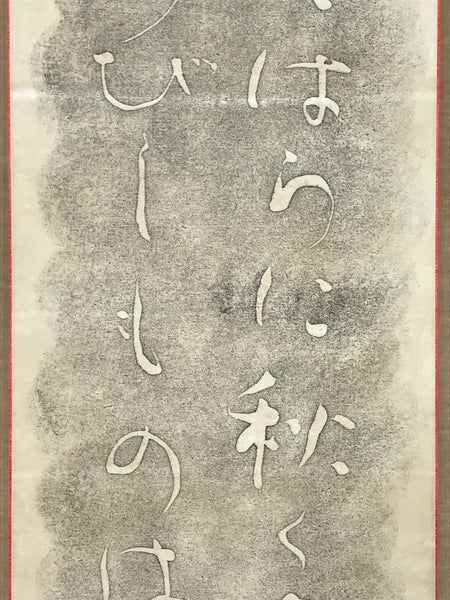 はらに秋く
びしものは